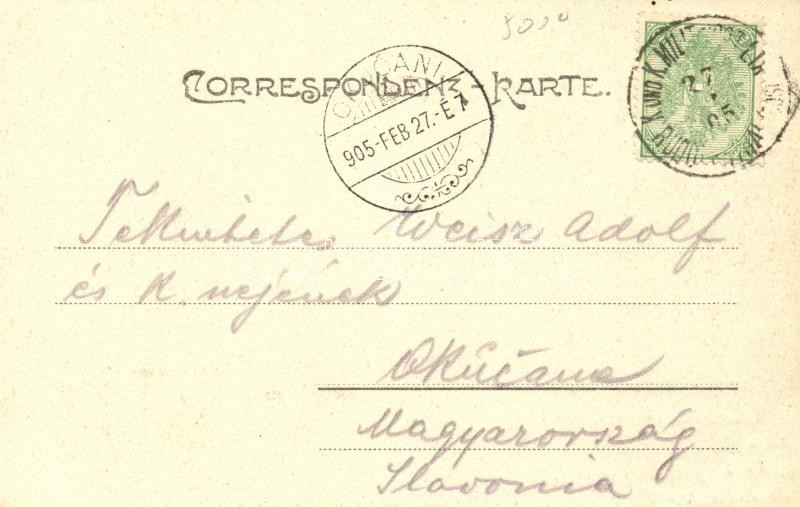 5000
CORRESPONDENZ-KARTE.
905-FEB 27.-É7
K. UND K. MILIT. POST
27
05
Tekintetes Weisz Adolf
és K. nejének
Okučane
Magyarország
Slavonia